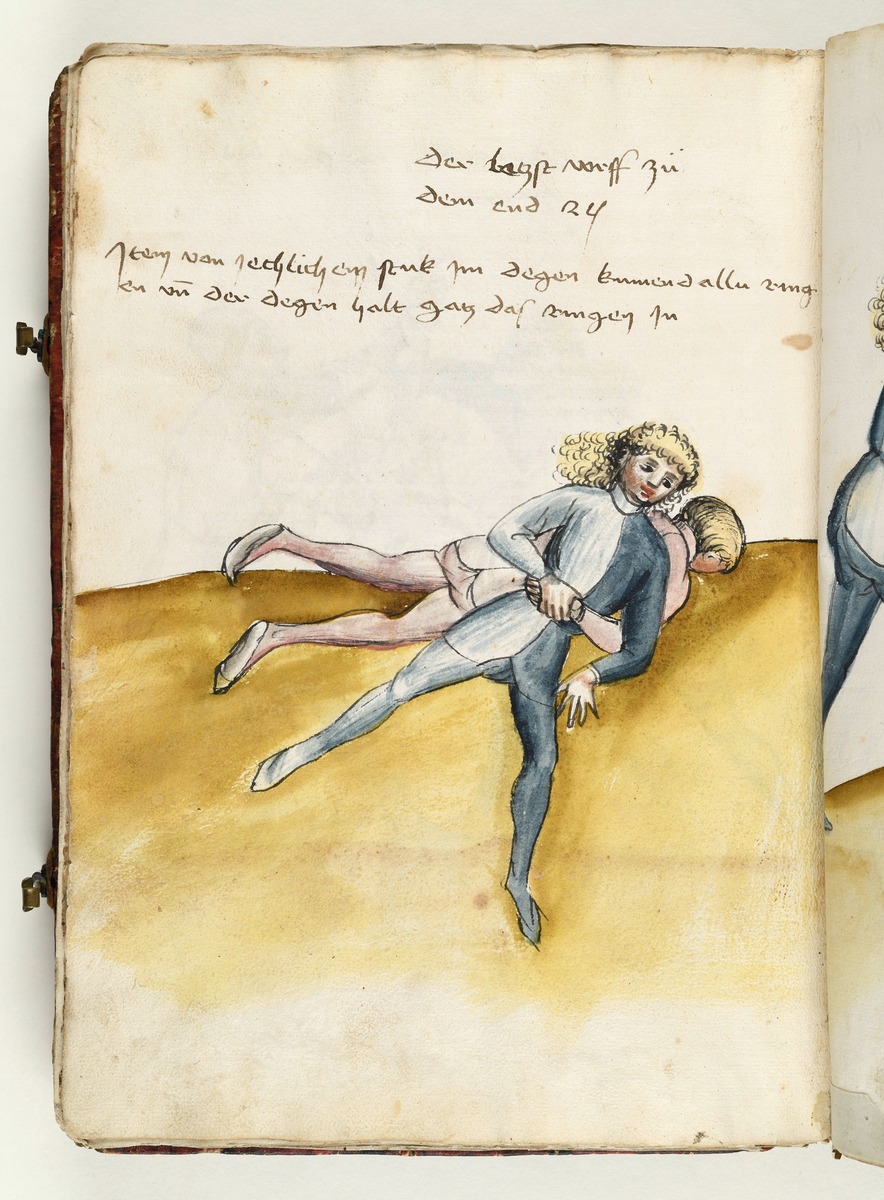 der letzst wrff zů
dem end 24
Item von Jechlichem stuk Im degen kumend allu ring
en vn̄ der degen halt gatz das ringen In